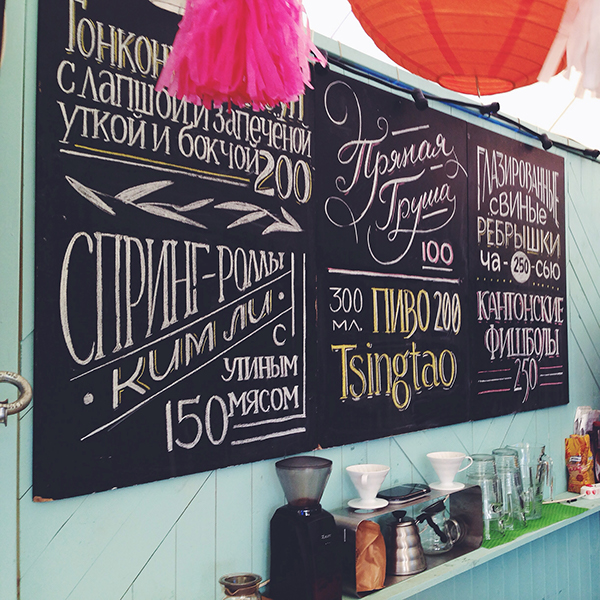 Гонконг
с лапшой, и запечёной
уткой и бокчой 200
СПРИНГ-РОЛЛЫ
КИМ ЛИ
с
утиным
мясом
150
Пряная
Груша
100
300
МЛ.
ПИВО 200
Tsingtao
ГЛАЗИРОВАННЫЕ
СВИНЫЕ
РЕБРЫШКИ
ЧА-250-СЬЮ
КАНТОНСКИЕ
ФИШБОЛЫ
250